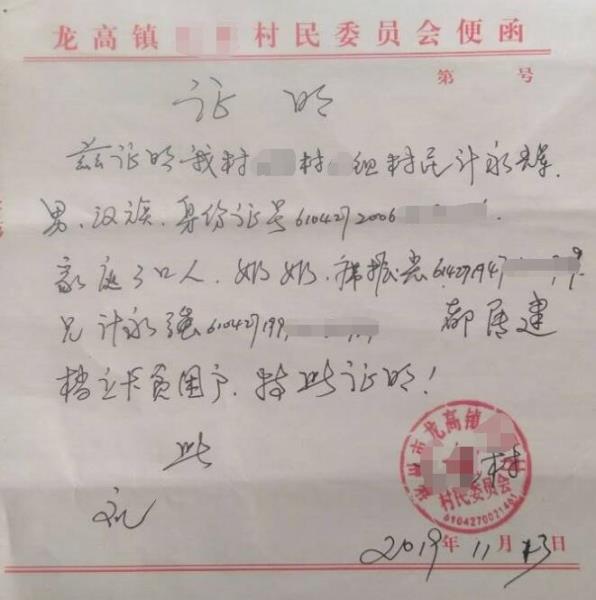 龙高镇 村民委员会便函
第 号
证明
兹证明我村 村 组村民计永辉.
男、汉族、身份证号6104272006
家庭3口人. 奶奶. 6104271947
兄计永强610427199 都属建
档立卡贫困户. 特此证明!
此
礼
市龙高镇
村
村民委员会
6104270021401
2019年11月13日